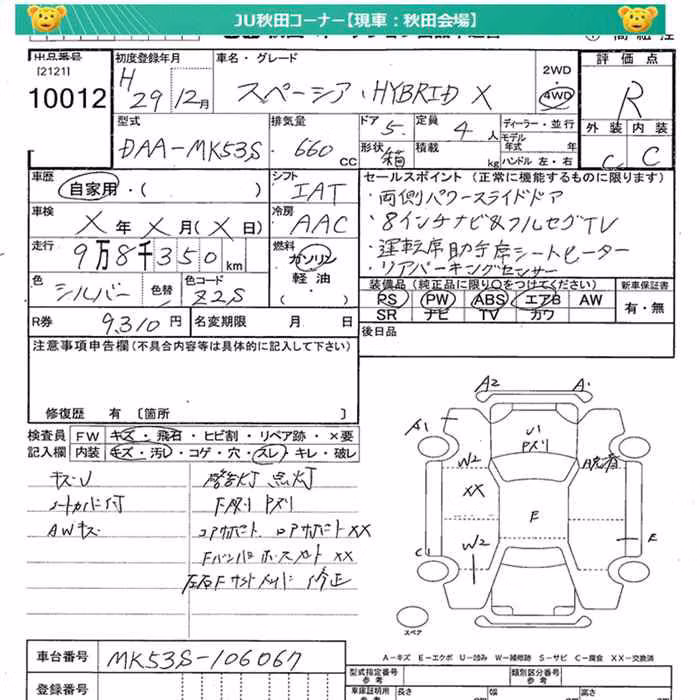 JU秋田コーナー【現車：秋田会場】
出品番号
[2121]
10012
初度登録年月
H 29年 12月
車名・グレード
スペーシア HYBRID X
2WD
4WD
評価点
R
外装 内装
C C
型式
DAA-MK53S
排気量
660 CC
ドア 5
形状 箱
定員 4人
積載 kg
ディーラー・並行
モデル年式 年式
ハンドル 左・右
車歴
自家用・( )
シフト
IAT
車検
X年 X月(X日)
冷房
AAC
走行
9万8千350km
燃料
ガソリン
軽油
( )
色
シルバー
色替
色コード
Z2S
R券
9,310円
名変期限 月 日
セールスポイント（正常に機能するものに限ります）
・両側パワースライドドア
・8インチナビ&フルセグTV
・運転席助手席シートヒーター
・リアパーキングセンサー
装備品（純正品に限り○をつけてください）
PS PW ABS エアB AW
SR ナビ TV カワ
新車保証書
有・無
後日品
注意事項申告欄（不具合内容等は具体的に記入して下さい）
修復歴 有 [箇所 ]
検査員記入欄
FW キズ・飛石・ヒビ割・リペア跡・×要
内装 キズ・汚レ・コゲ・穴・スレ・キレ・破レ
キズU
シートカバー付
AWキズ
警告灯 点灯
コアサポート ロアサポート XX
Fバンパーホースメント XX
左右Fサイドメンバー 修正
A2
A1
A1
W2
XX
W2
C
E
E
スペア
A－キズ E－エクボ U－凹み W－補修跡 S－サビ C－腐食 XX－交換済
車台番号
MK53S-106067
登録番号
型式指定番号
参考
類別区分番号
参考
車庫証明用
参考
長さ
幅
高さ